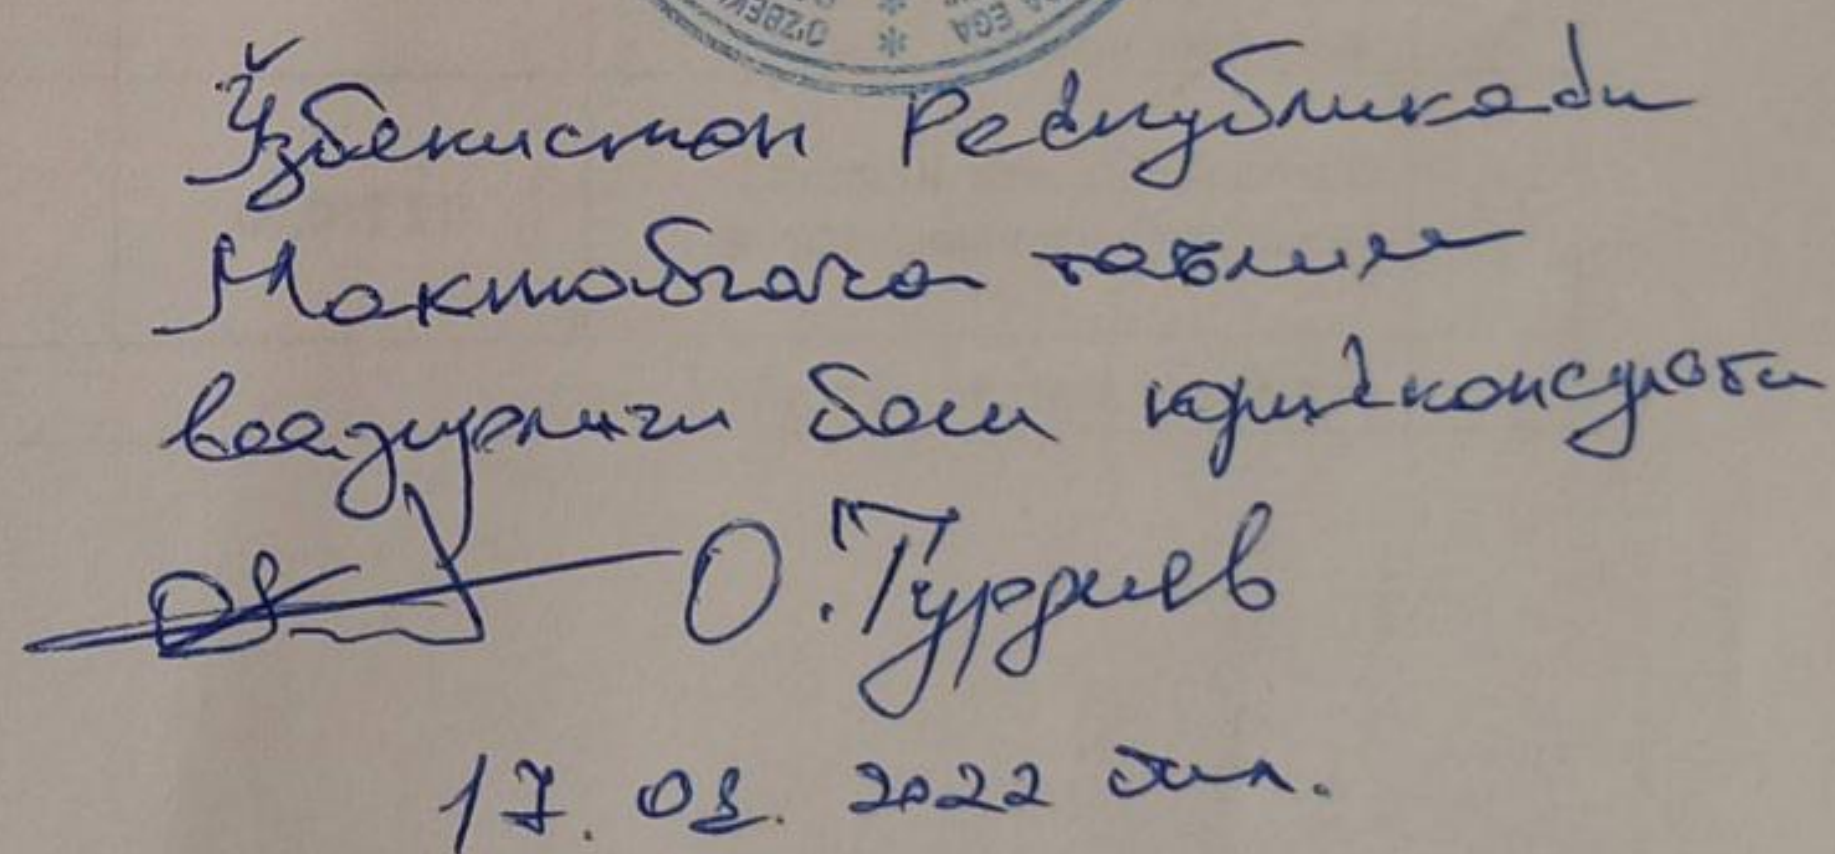 O'ZBEK
GA EGA
Ўзбекистон Республикаси
Мактабгача таълим
вазирлиги бош юрисконсульти
О.Турдиев
17. 08. 2022 йил.